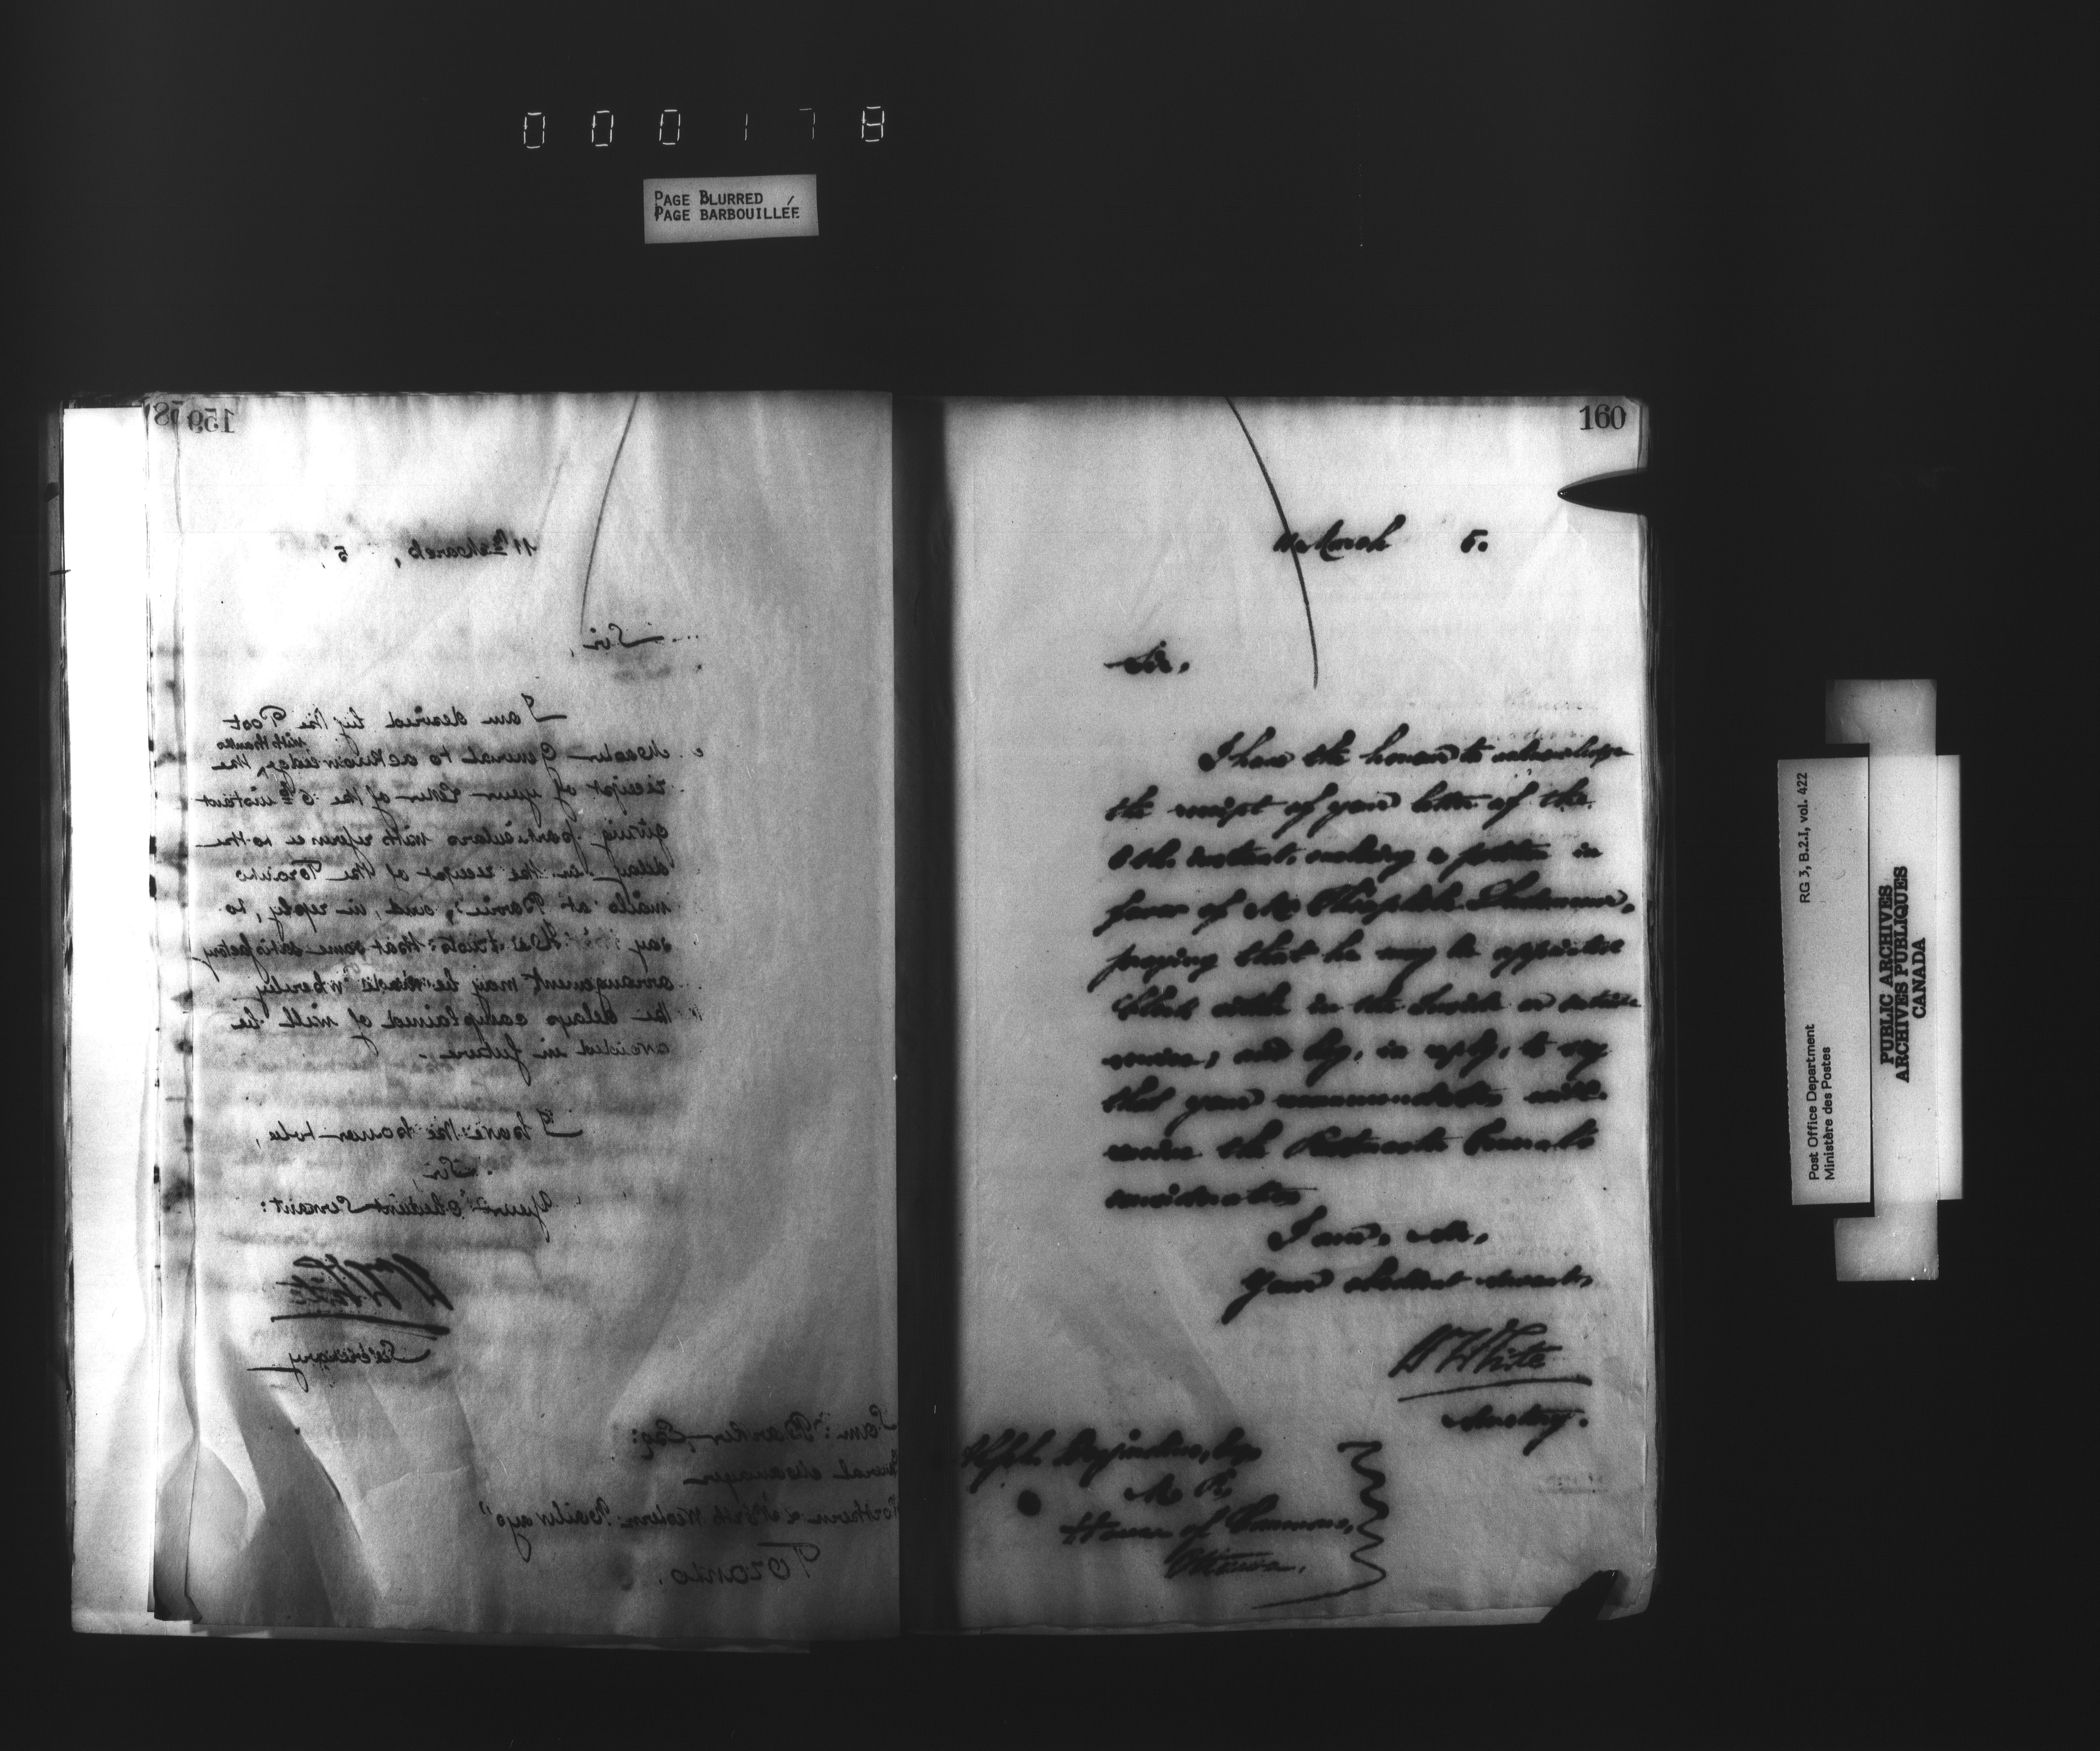 000178
PAGE BLURRED
PAGE BARBOUILLÉE
158
159
11th March, 5.
Sir,
I am desired by the Post
Master General to acknowledge, with thanks, the
receipt of your letter of the 6th instant
giving particulars with reference to the
delay in the receipt of the Toronto
mails at Barrie, and, in reply, to
say he trusts that some satisfactory
arrangement may be made whereby
the delays complained of will be
avoided in future.
I have the honor to be,
Sir,
Your obedient Servant:
W H White
Secretary
Sam: Barker, Esq:
General Manager
Northern & North Western Railways
Toronto.
160
11 March 5.
Sir,
I have the honour to acknowledge
the receipt of your letter of the
instant, enclosing a petition in
favor of Mr Théophile
praying that he may be appointed
Clerk either in the Inside or outside
service, and beg, in reply, to say
that your recommendation will
receive the Postmaster General's
consideration
I am, Sir,
Your obedient servant,
W H White
Secretary.
Desjardins, Esq.
M. P.
House of Commons,
Ottawa.
RG 3, B.2.I, vol. 422
Post Office Department
Ministère des Postes
PUBLIC ARCHIVES
ARCHIVES PUBLIQUES
CANADA